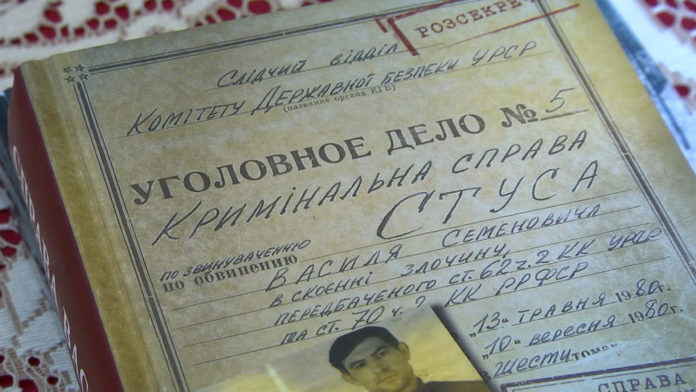 РОЗСЕКРЕ
СЛІДЧИЙ ВІДДІЛ
КОМІТЕТУ ДЕРЖАВНОЇ БЕЗПЕКИ УРСР
(название органа КГБ)
УГОЛОВНОЕ ДЕЛО № 5
КРИМІНАЛЬНА СПРАВА
СТУСА
ПО ЗВИНУВАЧЕННЮ
по обвинению
ВАСИЛЯ СЕМЕНОВИЧА
В СКОЄННІ ЗЛОЧИНУ,
ПЕРЕДБАЧЕНОГО СТ. 62 Ч. 2 КК УРСР
ТА СТ. 70 Ч. 2 КК РРФСР
"13" ТРАВНЯ 1980г.
"10" ВЕРЕСНЯ 1980г.
ШЕСТИ томах
СПРАВА
СПРАВА ВАС